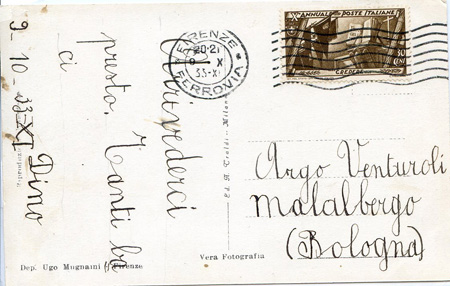 9-10-33-XI
Arrivederci
presto. Tanti ba
ci
Dino
FIRENZE
FERROVIA
20-21
9 X
33-XI
Xº ANNUALE
POSTE ITALIANE
30
CENT
CREDERE
Argo Venturoli
Malalbergo
(Bologna)
Vera Fotografia
Dep. Ugo Mugnaini - Firenze